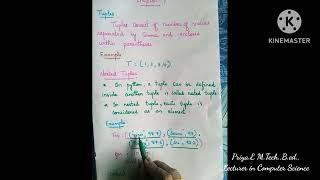 Tuples:
Tuples consist of number of values
separated by comma and enclosed
within paranthesis
Example
T = (1, 2, 3, 4)
Nested Tuples
In python, a tuple can be defined
inside another tuple is called nested tuple
In nested tuple, each tuple is
considered as an element.
Example
KINEMASTER
Priya.E M.Tech.,B.ed.,
Lecturer in Computer Science